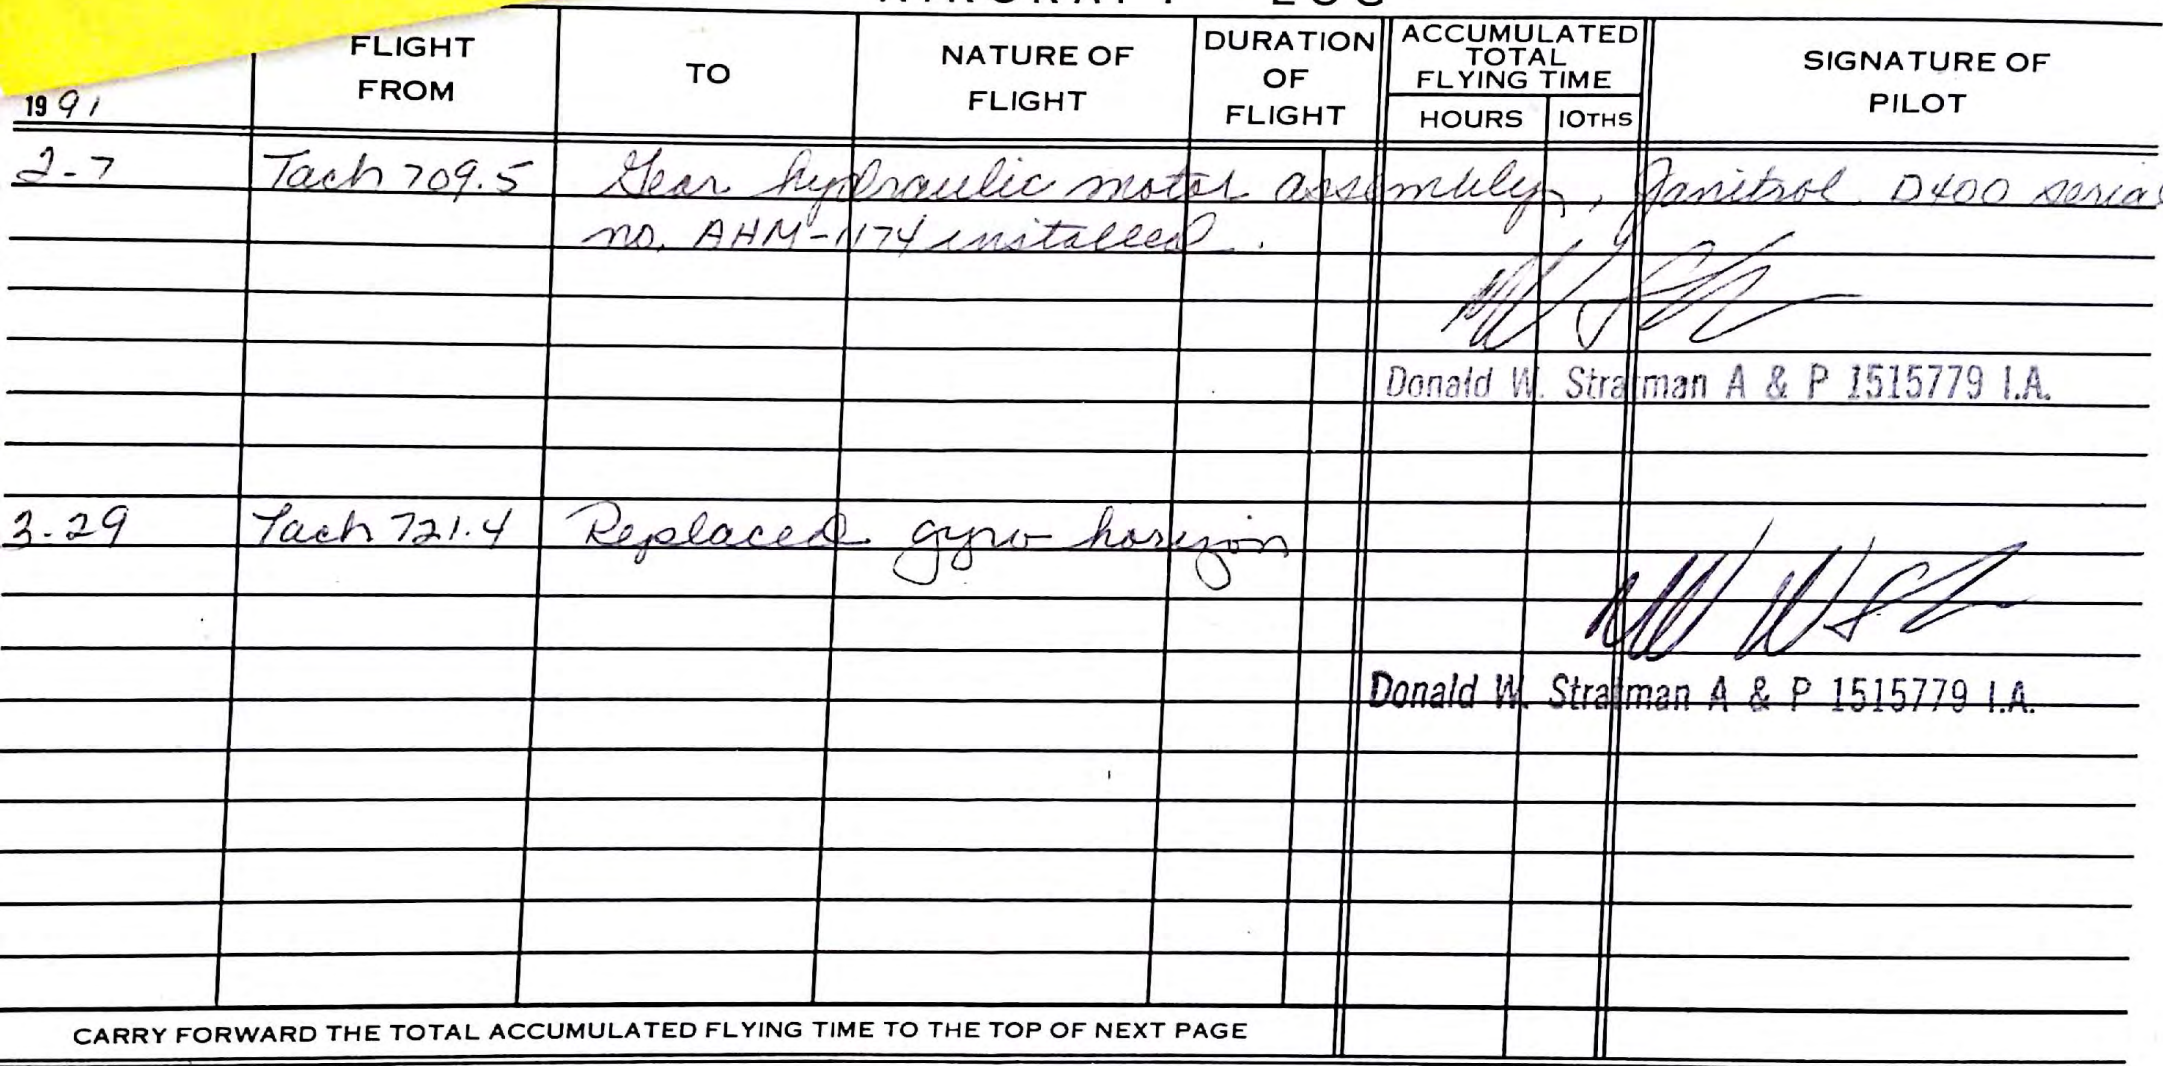 AIRCRAFT LOG
FLIGHT FROM
TO
NATURE OF FLIGHT
DURATION OF FLIGHT
ACCUMULATED TOTAL FLYING TIME
HOURS
10THS
SIGNATURE OF PILOT
1991
2-7 Tach 709.5 Gear hydraulic motor assembly, Janitrol D400 serial
no. AHM-1174 installed.
Donald W. Stratman A & P 1515779 I.A.
3-29 Tach 721.4 Replaced gyro horizon
Donald W. Stratman A & P 1515779 I.A.
CARRY FORWARD THE TOTAL ACCUMULATED FLYING TIME TO THE TOP OF NEXT PAGE